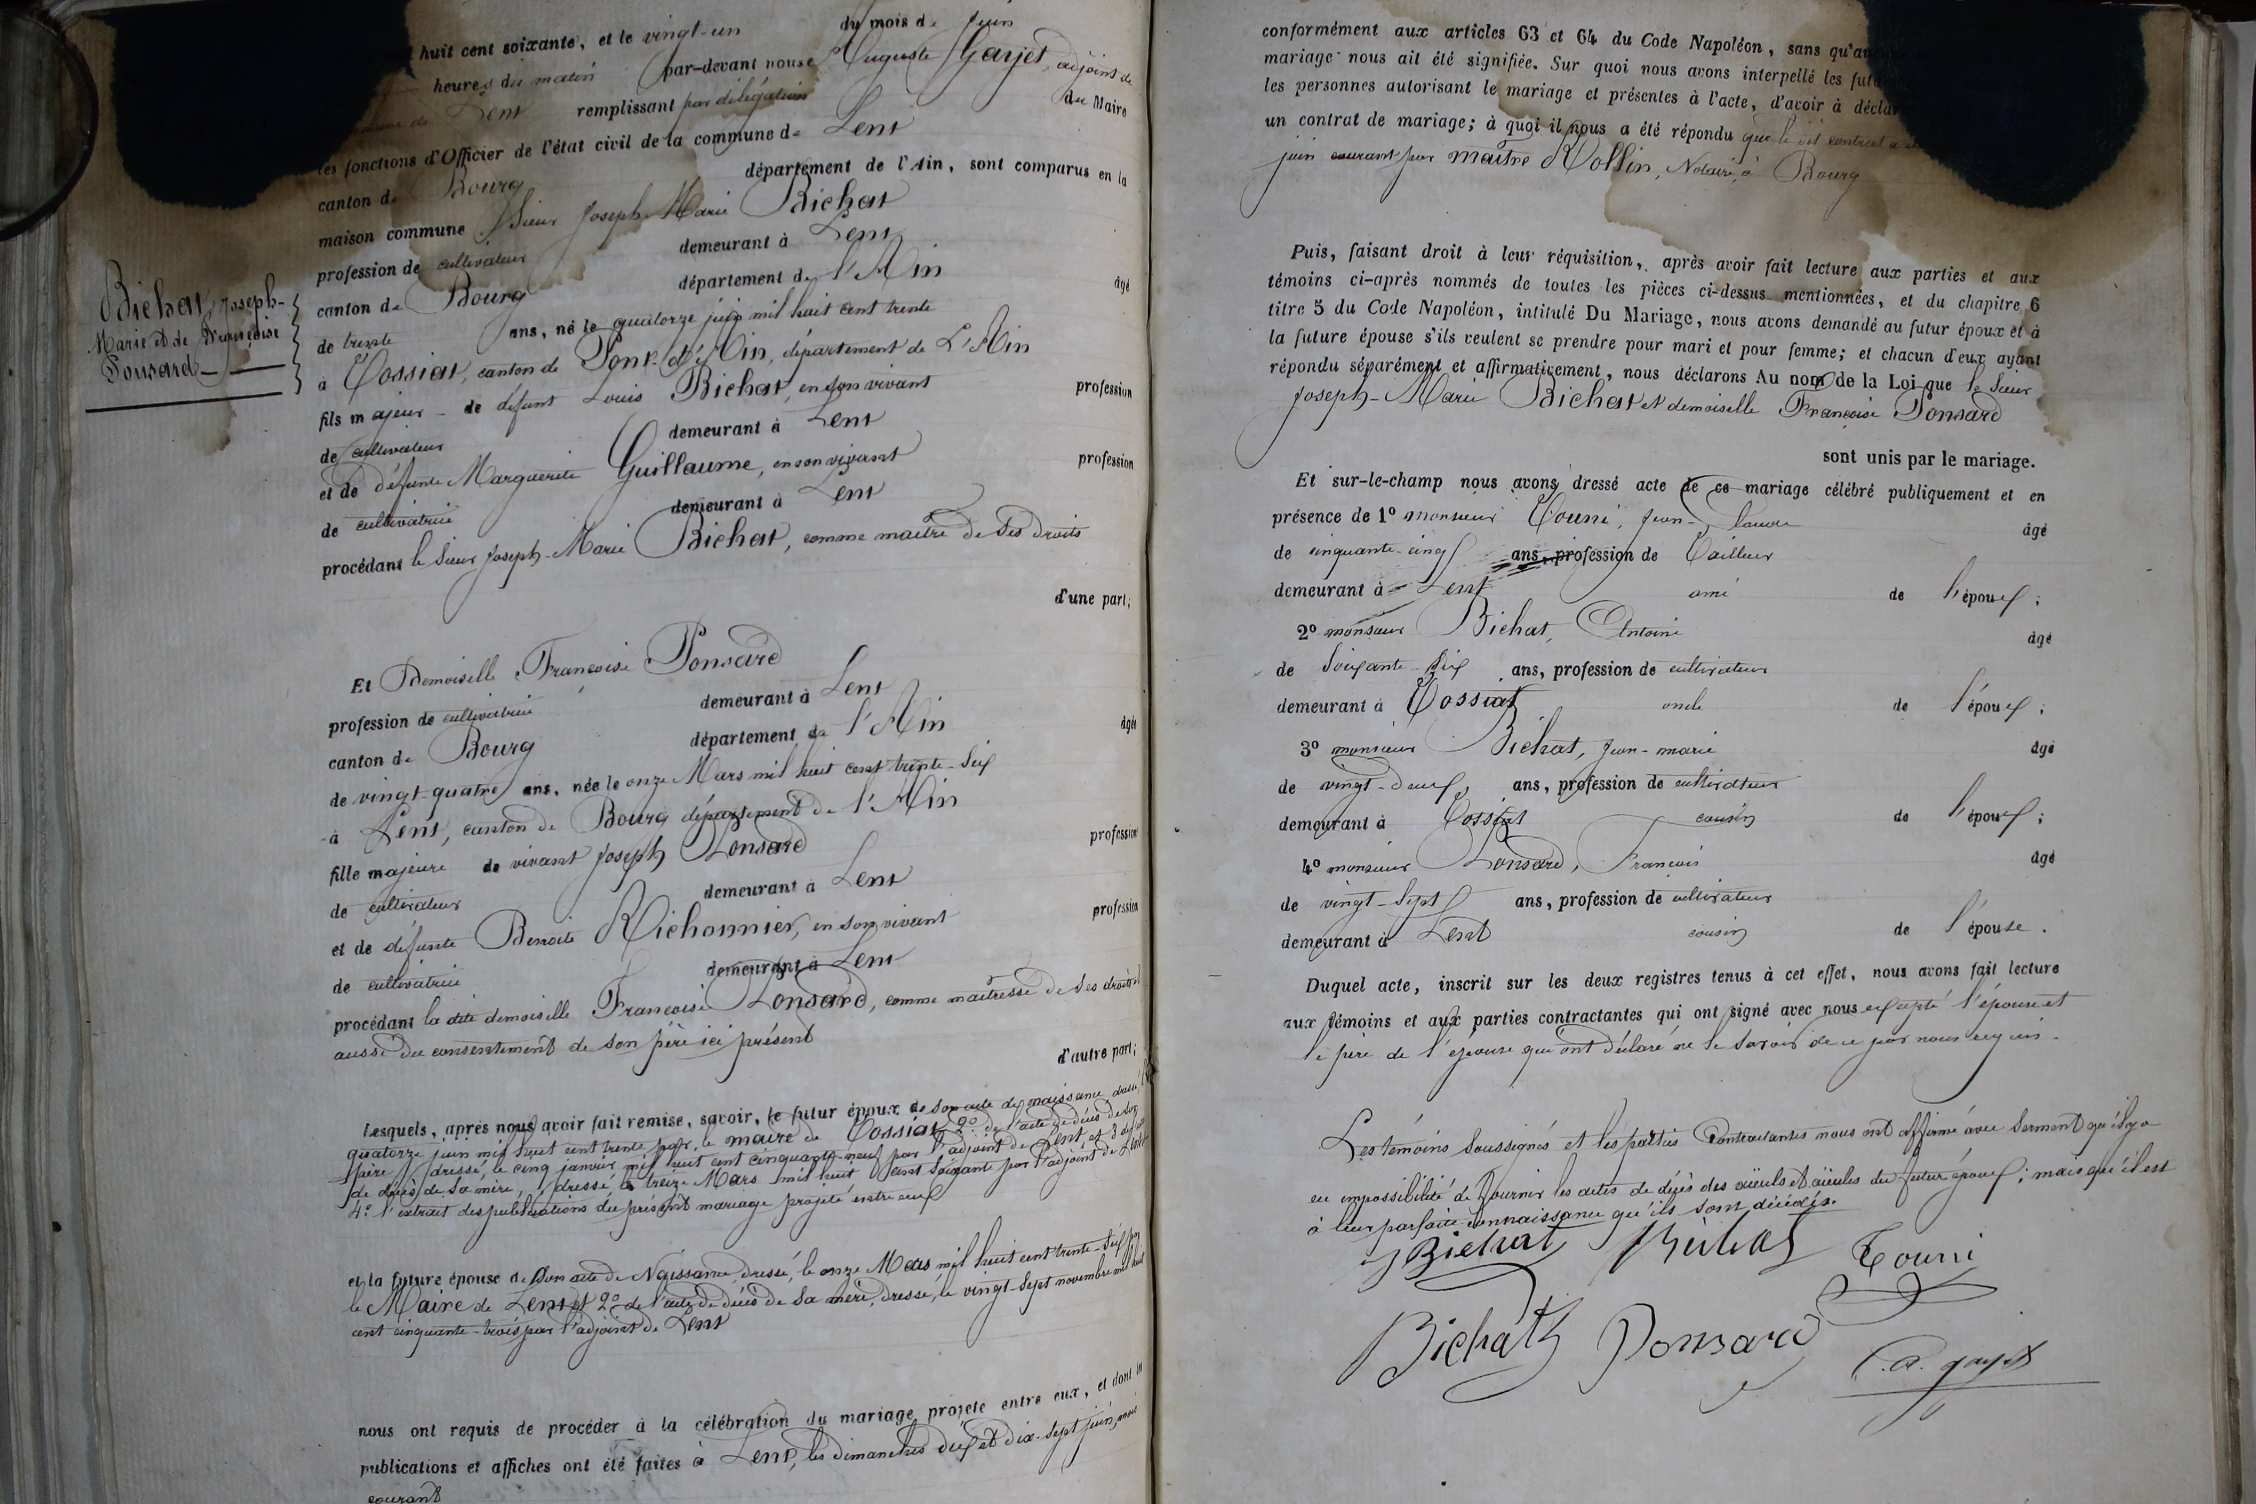 huit cent soixante, et le vingt-un du mois de Juin
heures du matin par-devant nous Auguste Gayet, adjoint du
Lent remplissant par délégation du Maire
les fonctions d'Officier de l'état civil de la commune de Lent
canton de Bourg département de l'Ain, sont comparus en la
maison commune Sieur Joseph-Marie Bichat
profession de cultivateur demeurant à Lent
canton de Bourg département de l'Ain âgé
de trente ans, né le quatorze juin mil huit cent trente
à Tossiat, canton de Pont-d'Ain, département de L'Ain
fils majeur de défunt Louis Bichat, en son vivant profession
de cultivateur demeurant à Lent
et de défunte Marguerite Guillaume, en son vivant profession
de cultivatrice demeurant à Lent
procédant le Sieur Joseph-Marie Bichat, comme maître de Ses droits
d'une part;
Bichat, Joseph-
Marie et de Françoise
Ponsard
Et Demoiselle Françoise Ponsard
profession de cultivatrice demeurant à Lent
canton de Bourg département de l'Ain âgée
de vingt-quatre ans, née le onze Mars mil huit cent trente-Six
à Lent, canton de Bourg département de l'Ain
fille majeure de vivant Joseph Ponsard profession
de cultivateur demeurant à Lent
et de défunte Benoite Richonnier, en son vivant profession
de cultivatrice demeurant à Lent
procédant la dite demoiselle Françoise Ponsard, comme maîtresse de Ses droits et
aussi du consentement de Son père ici présent
d'autre part;
Lesquels, après nous avoir fait remise, savoir, le futur époux de Son acte de naissance, dressé, le
quatorze juin mil huit cent trente par le maire de Tossiat, 2° de l'acte de décès de Son
père dressé, le cinq janvier mil huit cent cinquante-neuf par l'adjoint de Lent, et 3° de l'acte
de décès de Sa mère, dressé le treize Mars mil huit cent Soixante par l'adjoint de Lent
4° l'extrait des publications du présent mariage projeté entre eux
et la future épouse de Son acte de Naissance, dressé, le onze Mars mil huit cent trente-Six par
le Maire de Lent et 2° de l'acte de décès de Sa mère, dressé, le vingt-Sept novembre mil huit
cent cinquante-trois par l'adjoint de Lent
nous ont requis de procéder à la célébration du mariage projeté entre eux, et dont les
publications et affiches ont été faites à Lent, les dimanches dix et dix-Sept juin, mois
courant
conformément aux articles 63 et 64 du Code Napoléon, sans qu'au
mariage nous ait été signifiée. Sur quoi nous avons interpellé les futu
les personnes autorisant le mariage et présentes à l'acte, d'avoir à décla
un contrat de mariage; à quoi il nous a été répondu que le dit contrat a
juin courant par maître Rollin, Notaire, à Bourg
Puis, faisant droit à leur réquisition, après avoir fait lecture aux parties et aux
témoins ci-après nommés de toutes les pièces ci-dessus mentionnées, et du chapitre 6
titre 5 du Code Napoléon, intitulé Du Mariage, nous avons demandé au futur époux et à
la future épouse s'ils veulent se prendre pour mari et pour femme; et chacun d'eux ayant
répondu séparément et affirmativement, nous déclarons Au nom de la Loi que le Sieur
Joseph-Marie Bichat et demoiselle Françoise Ponsard
sont unis par le mariage.
Et sur-le-champ nous avons dressé acte de ce mariage célébré publiquement et en
présence de 1° monsieur Touni, Jean-Claude âgé
de cinquante-cinq ans, profession de Tailleur
demeurant à Lent ami de l'époux;
2° monsieur Bichat, Antoine âgé
de Soixante-Six ans, profession de cultivateur
demeurant à Tossiat oncle de l'époux;
3° monsieur Bichat, Jean-marie âgé
de vingt-deux ans, profession de cultivateur
demeurant à Tossiat cousin de l'époux;
4° monsieur Ponsard, François âgé
de vingt-Sept ans, profession de cultivateur
demeurant à Lent cousin de l'épouse.
Duquel acte, inscrit sur les deux registres tenus à cet effet, nous avons fait lecture
aux témoins et aux parties contractantes qui ont signé avec nous excepté l'épouse et
le père de l'épouse qui ont déclaré ne le Savoir de ce par nous requis.
Les témoins Soussignés et les parties Contractantes nous ont affirmé avec Serment qu'il y a
eu impossibilité de fournir les actes de décès des aïeuls et aïeules du futur époux; mais qu'il est
à leur parfaite connaissance qu'ils Sont décédés.
Bichat Bichat Touni
Bichath Ponsard C. A. gayet